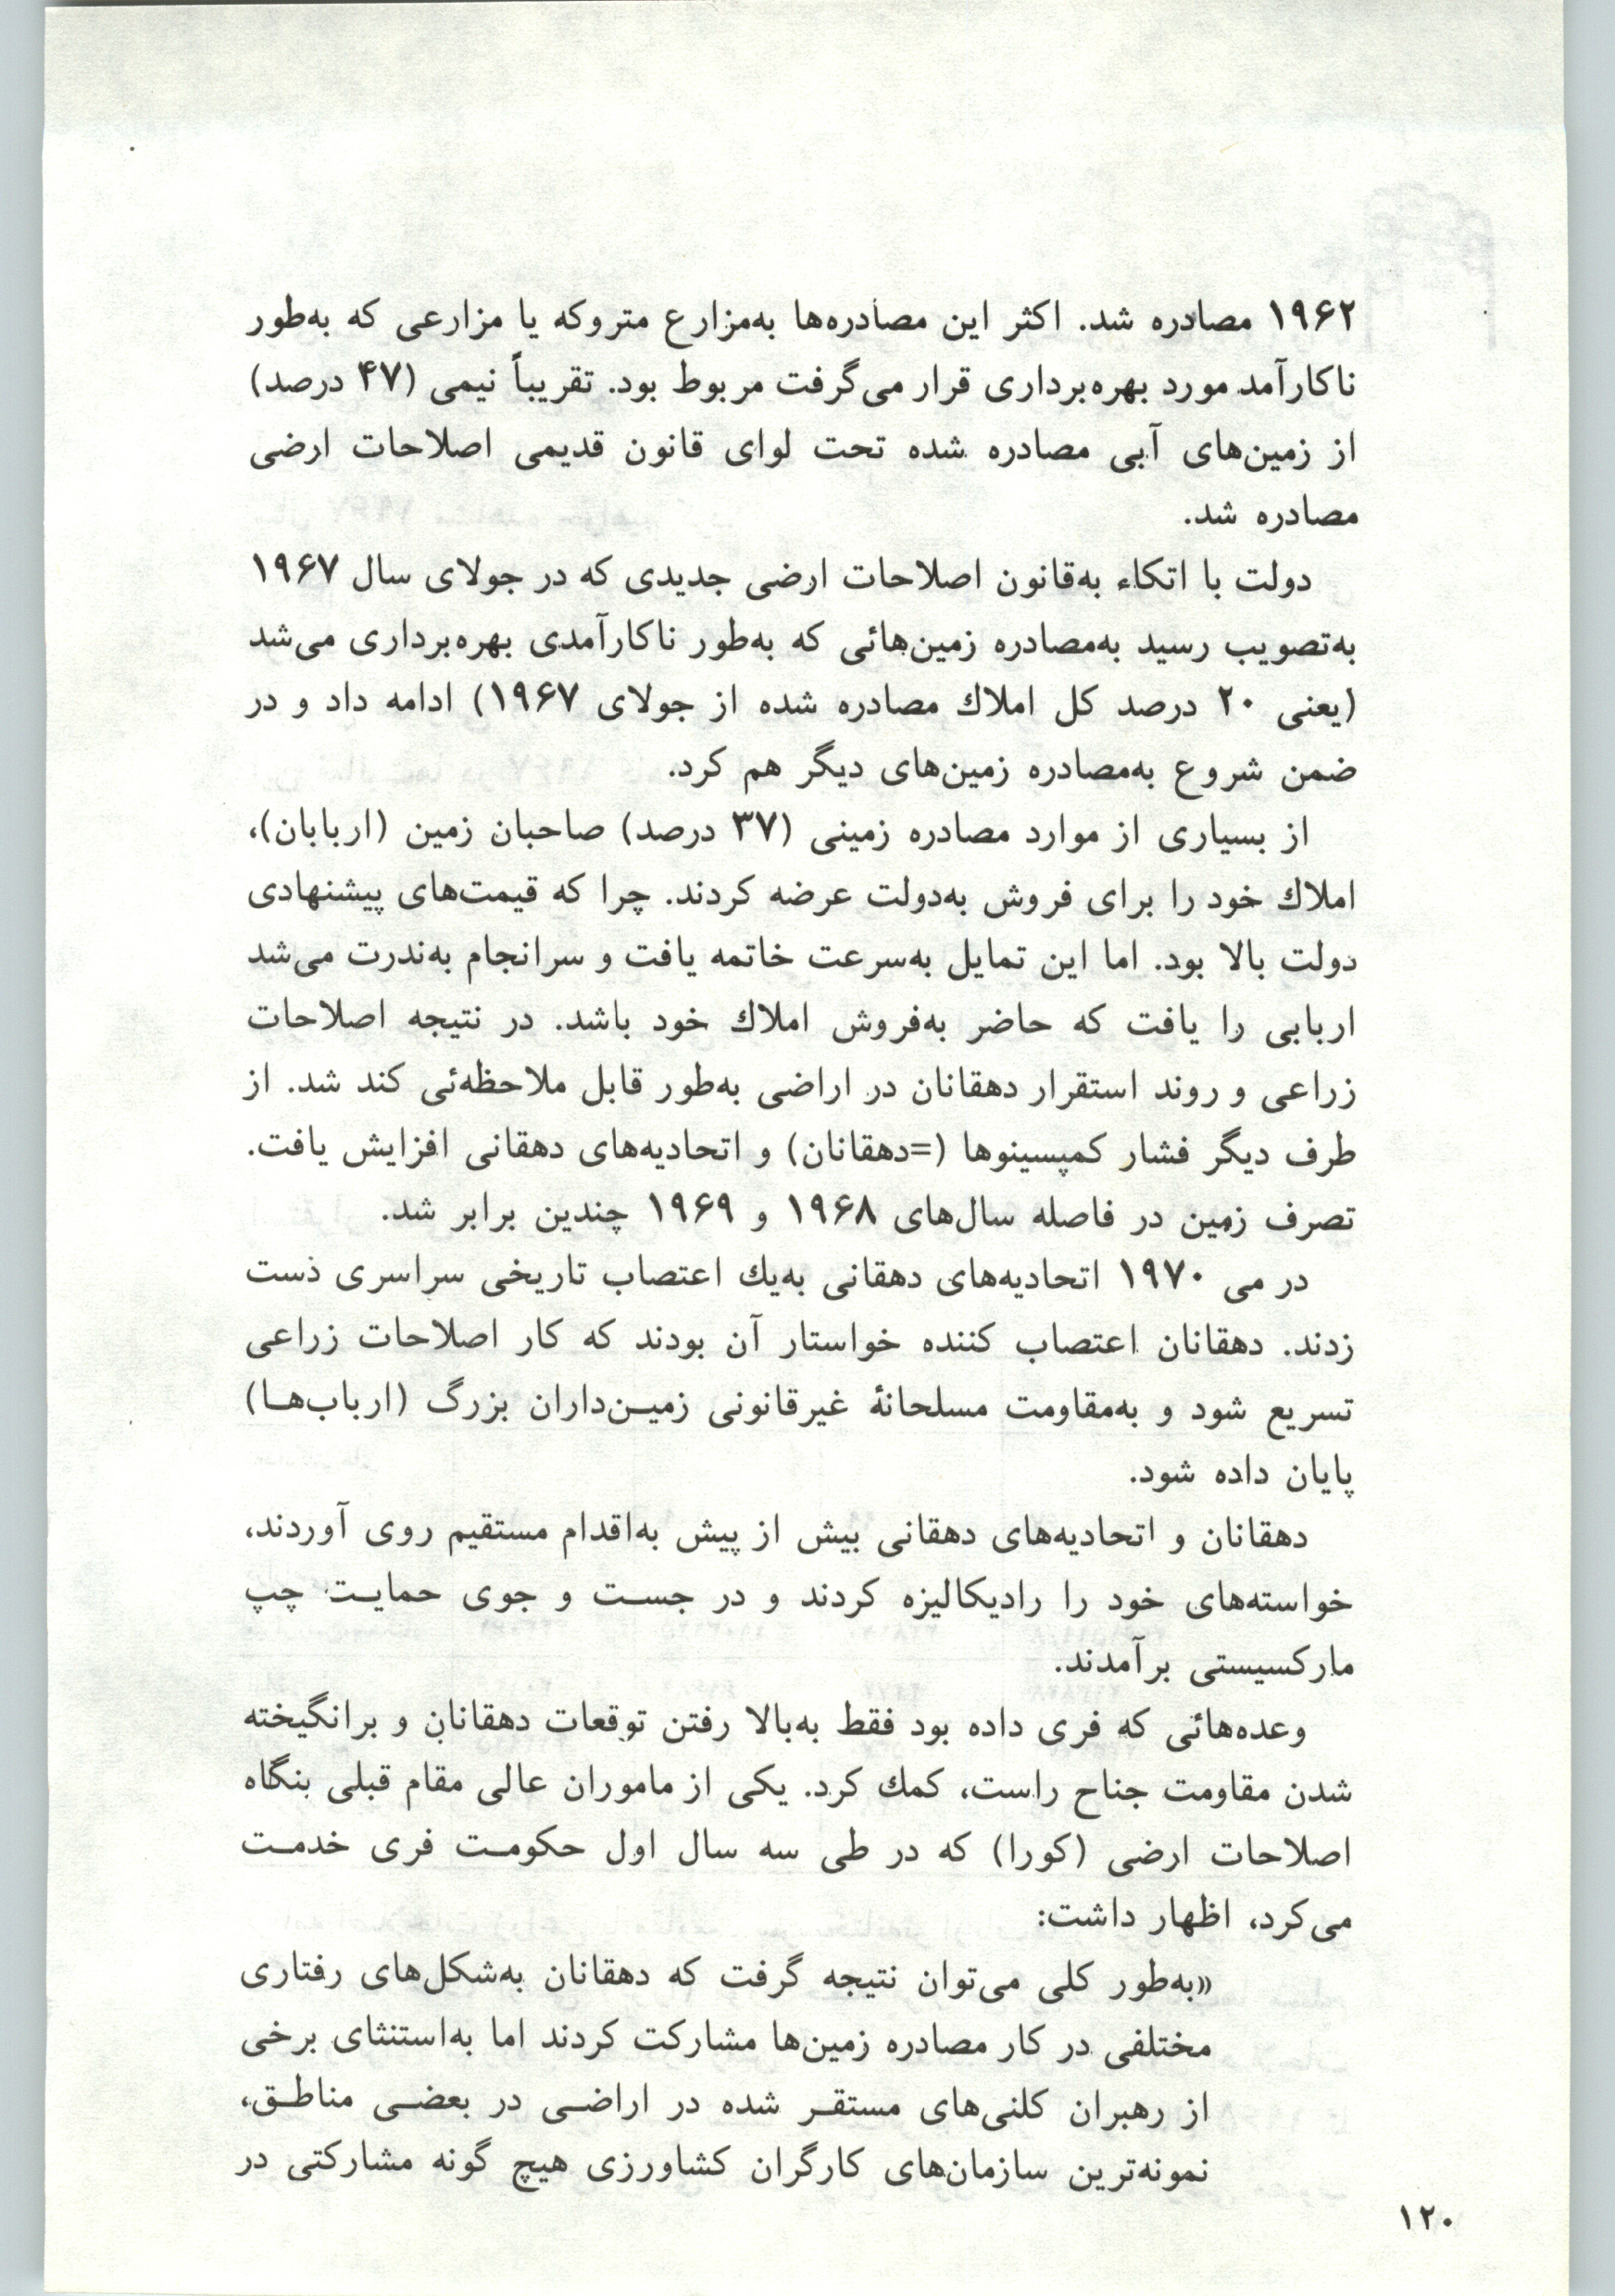 ۱۹۶۲ مصادره شد. اکثر این مصادره‌ها به‌مزارع متروکه یا مزارعی که به‌طور
ناکارآمد مورد بهره‌برداری قرار می‌گرفت مربوط بود. تقریباً نیمی (۴۷ درصد)
از زمین‌های آبی مصادره شده تحت لوای قانون قدیمی اصلاحات ارضی
مصادره شد.
دولت با اتکاء به‌قانون اصلاحات ارضی جدیدی که در جولای سال ۱۹۶۷
به‌تصویب رسید به‌مصادره زمین‌هائی که به‌طور ناکارآمدی بهره‌برداری می‌شد
(یعنی ۲۰ درصد کل املاك مصادره شده از جولای ۱۹۶۷) ادامه داد و در
ضمن شروع به‌مصادره زمین‌های دیگر هم کرد.
از بسیاری از موارد مصادره زمینی (۳۷ درصد) صاحبان زمین (اربابان)،
املاك خود را برای فروش به‌دولت عرضه کردند. چرا که قیمت‌های پیشنهادی
دولت بالا بود. اما این تمایل به‌سرعت خاتمه یافت و سرانجام به‌ندرت می‌شد
اربابی را یافت که حاضر به‌فروش املاك خود باشد. در نتیجه اصلاحات
زراعی و روند استقرار دهقانان در اراضی به‌طور قابل ملاحظه‌ئی کند شد. از
طرف دیگر فشار کمپسینوها (=دهقانان) و اتحادیه‌های دهقانی افزایش یافت.
تصرف زمین در فاصله سال‌های ۱۹۶۸ و ۱۹۶۹ چندین برابر شد.
در می ۱۹۷۰ اتحادیه‌های دهقانی به‌یك اعتصاب تاریخی سراسری دست
زدند. دهقانان اعتصاب کننده خواستار آن بودند که کار اصلاحات زراعی
تسریع شود و به‌مقاومت مسلحانهٔ غیرقانونی زمیـن‌داران بزرگ (ارباب‌هـا)
پایان داده شود.
دهقانان و اتحادیه‌های دهقانی بیش از پیش به‌اقدام مستقیم روی آوردند،
خواسته‌های خود را رادیکالیزه کردند و در جسـت و جوی حمایـت چپ
مارکسیستی برآمدند.
وعده‌هائی که فری داده بود فقط به‌بالا رفتن توقعات دهقانان و برانگیخته
شدن مقاومت جناح راست، کمك کرد. یکی از ماموران عالی مقام قبلی بنگاه
اصلاحات ارضی (کورا) که در طی سه سال اول حکومـت فری خدمـت
می‌کرد، اظهار داشت:
«به‌طور کلی می‌توان نتیجه گرفت که دهقانان به‌شکل‌های رفتاری
مختلفی در کار مصادره زمین‌ها مشارکت کردند اما به‌استثنای برخی
از رهبران کلنی‌های مستقـر شده در اراضـی در بعضـی مناطـق،
نمونه‌ترین سازمان‌های کارگران کشاورزی هیچ گونه مشارکتی در
۱۲۰